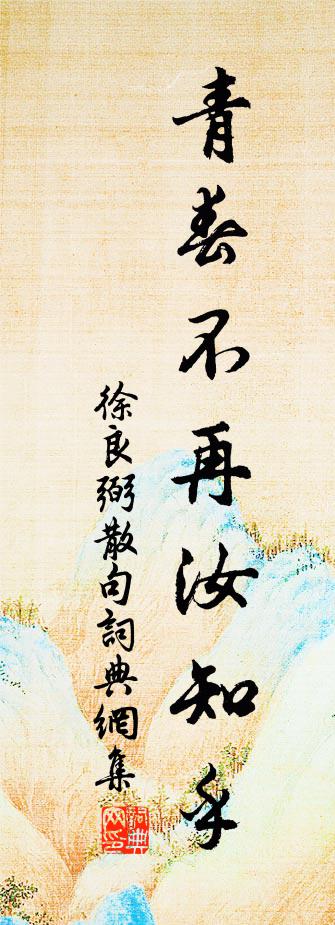 青春不再汝知乎
徐良弼散句詞典網集
詞典
网印